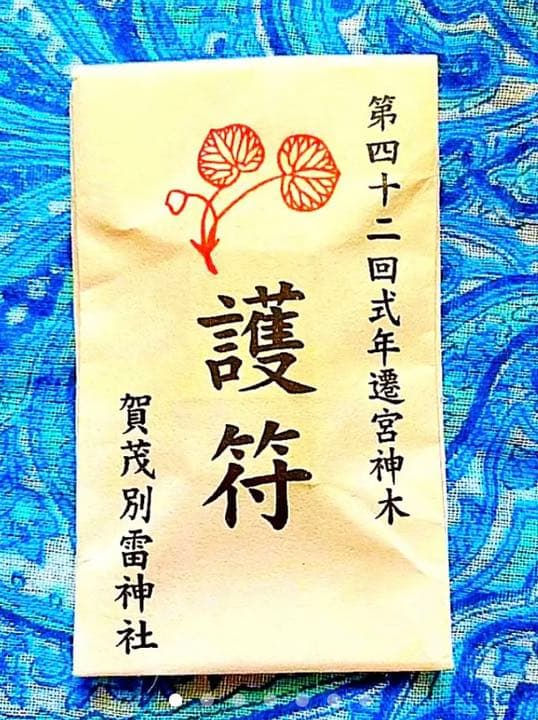 第四十二回式年遷宮神木
護符
賀茂別雷神社